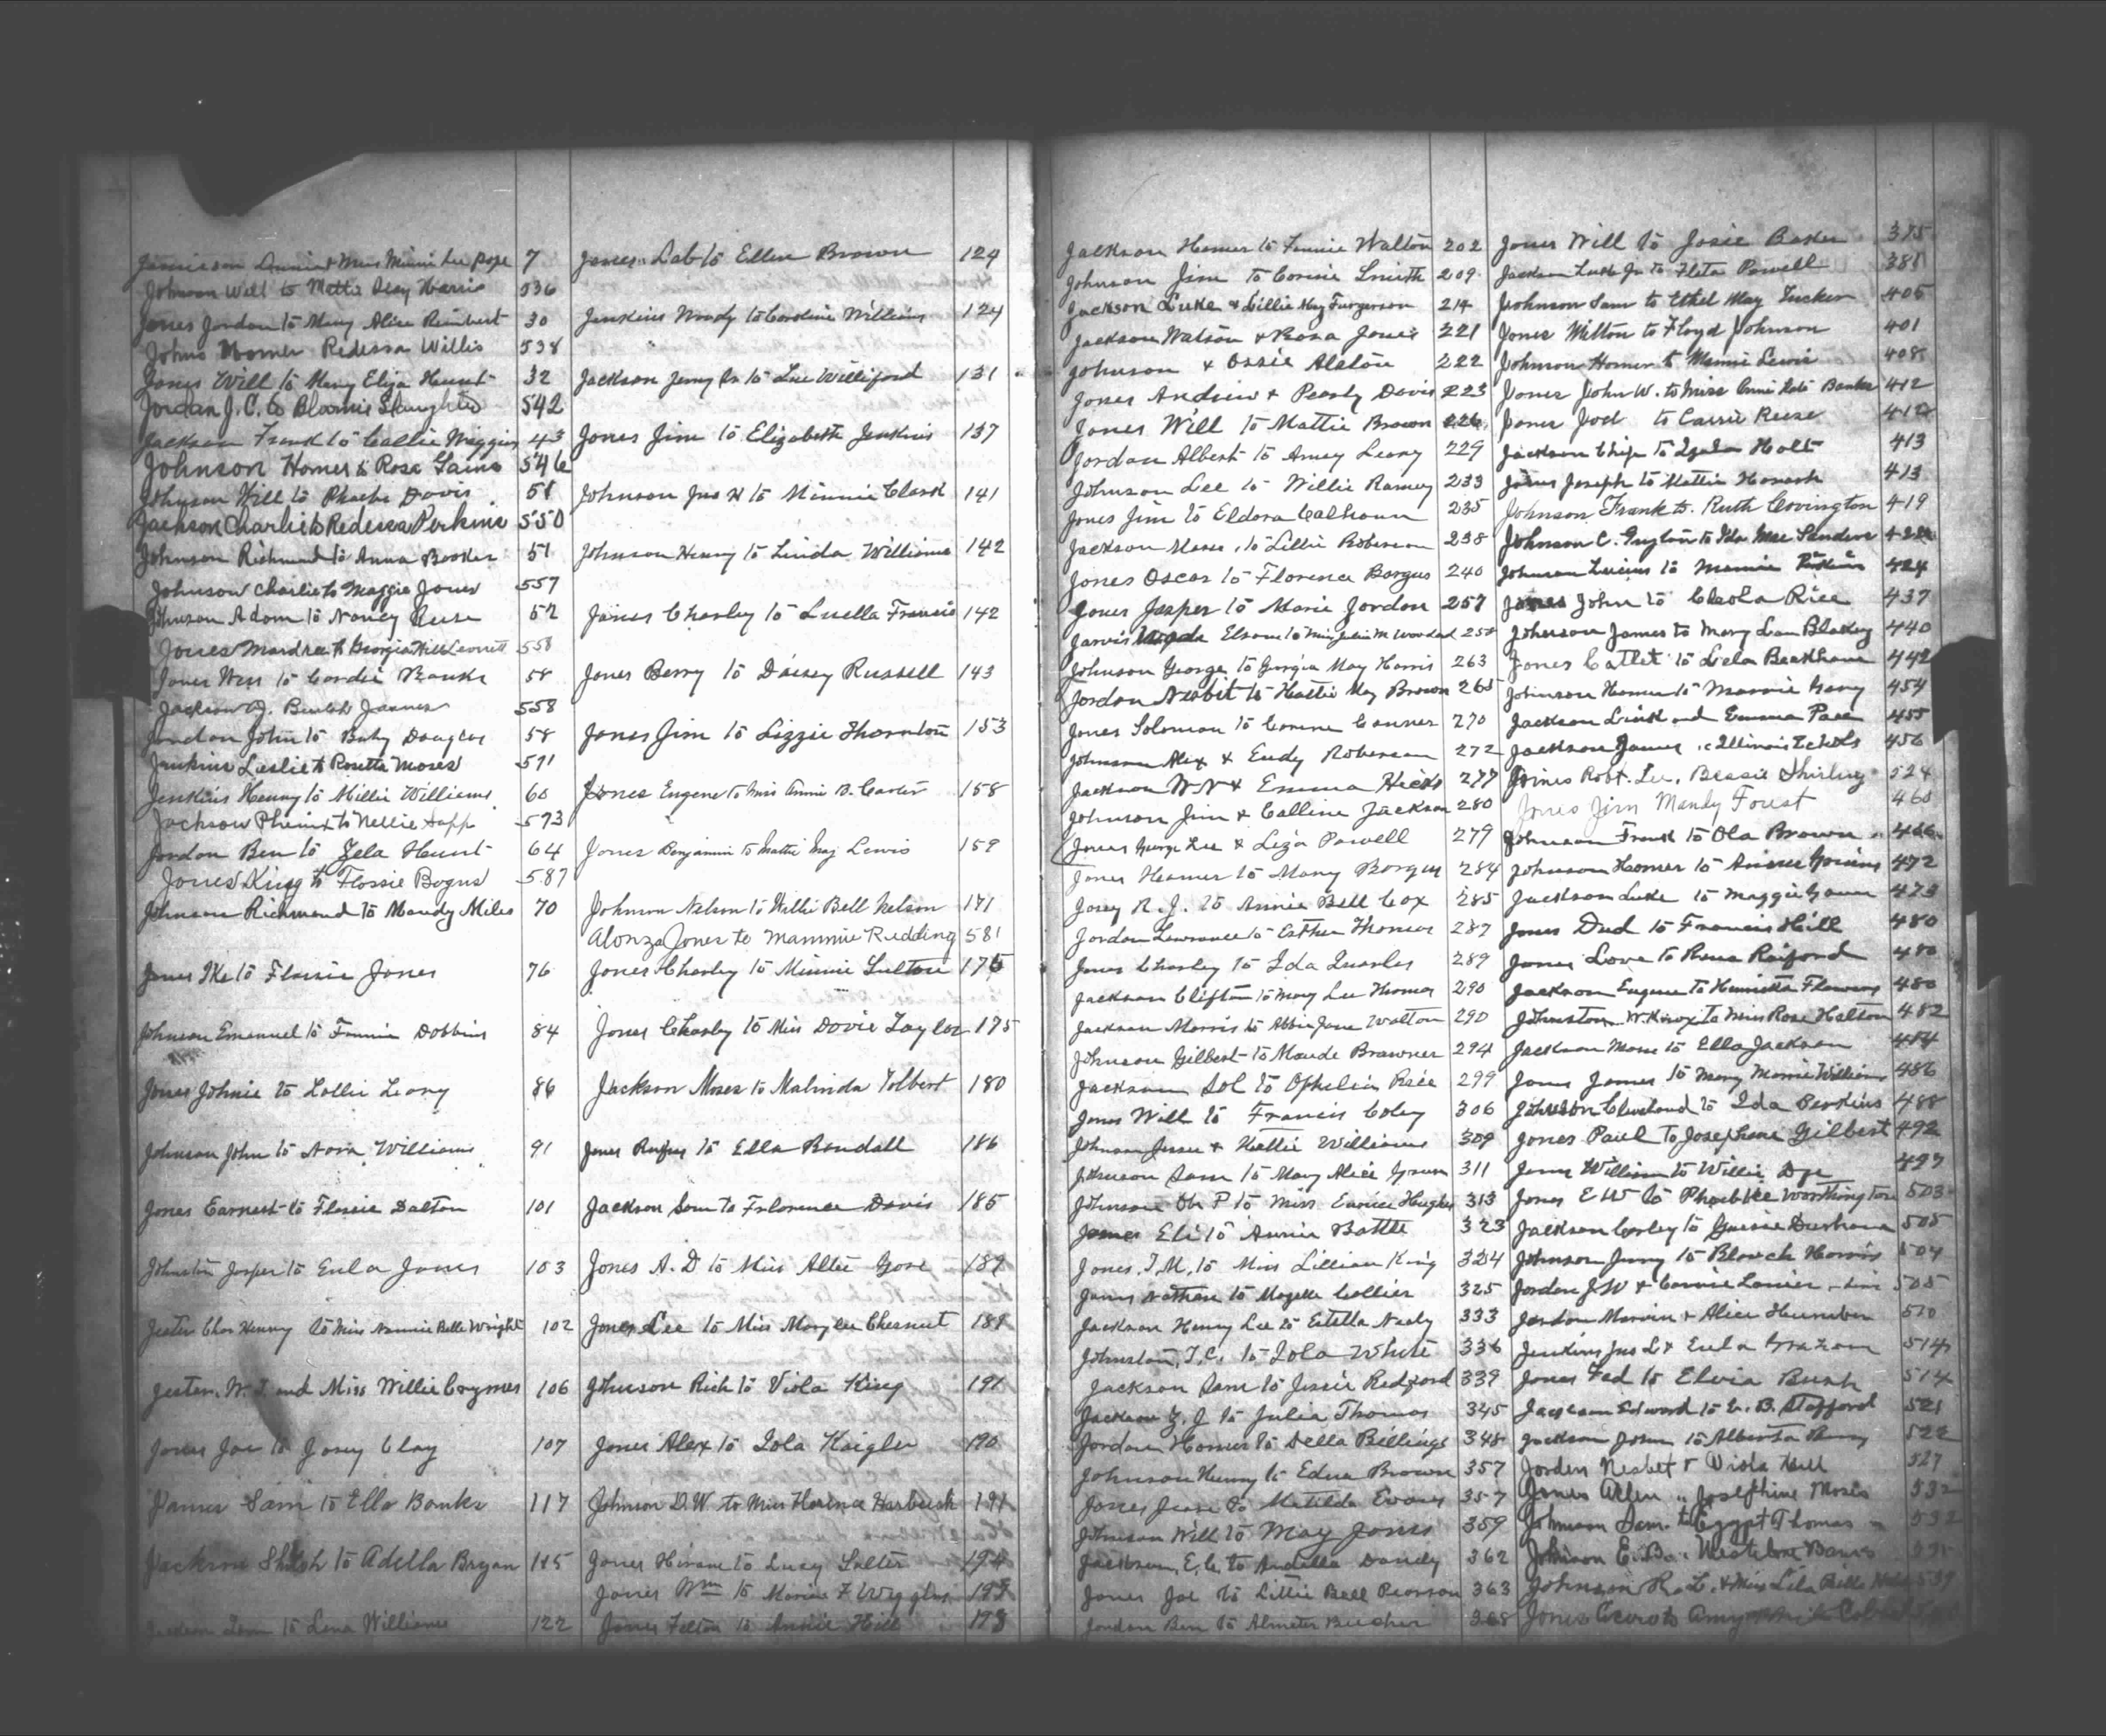 Jamieson Annie & Miss Minnie Lee Pope 7
Johnson Will to Mattie Clay Harris 536
Jones Jordan to Mary Alice Reinbert 30
Johns Homer Redessa Willis 538
Jones Will to Mary Eliza Hunt 32
Jordan J. C. to Bloomie Slaughter 542
Jackson Frank to Callie Wiggins 43
Johnson Homer to Rosa Gains 546
Johnson Will to Phoebe Davis 51
Jackson Charlie to Redessa Perkins 550
Johnson Richmond to Anna Booker 51
Johnson Charlie to Maggie Jones 557
Johnson Adam to Nancy Reese 52
Jones to Georgia Will Leverett 558
Jones Wes to Cordie Banks 58
Jackson J. Beulah James 558
Jordon John to Baby Douglas 58
Jenkins Leslie to Rosetta Moses 571
Jenkins Henry to Millie Williams 60
Jackson to Nellie Sapp 573
Jordon Ben to Zela Hunt 64
Jones King to Flossie Bogus 587
Johnson Richmond to Mandy Miles 70
Jones Ike to Flossie Jones 76
Johnson Emanuel to Fannie Dobbins 84
Jones Johnie to Lollie Leary 86
Johnson John to Nora Williams 91
Jones Earnest to Flossie Dalton 101
Johnston Jasper to Eula Jones 103
Jester Chas Henry to Miss Nannie Belle Wright 102
Jester, W. T. and Miss Willie Crymes 106
Jones Joe to Josey Clay 107
James Sam to Ella Banks 117
Jackson to Adella Bryan 115
Jackson to Lena Williams 122
Jones Lab to Ellen Brown 124
Jenkins Woody to Caroline Williams 124
Jackson Jerry Jr to Lue Williford 131
Jones Jim to Elizabeth Jenkins 137
Johnson Jno W to Minnie Clark 141
Johnson Henry to Linda Williams 142
Jones Charley to Luella Francis 142
Jones Berry to Daisey Russell 143
Jones Jim to Lizzie Thornton 153
Jones Eugene to Miss Annie B. Carter 158
Jones Benjamin to Mattie May Lewis 159
Johnson Nelson to Willie Bell Nelson 171
Alonza Jones to Mammie Redding 581
Jones Charley to Minnie Lulton 175
Jones Charley to Miss Dovie Taylor 175
Jackson Moses to Malinda Tolbert 180
Jones Rufus to Ella Randall 186
Jackson Sam to Florence Davis 185
Jones A. D to Miss Altie Gore 189
Jones Lee to Miss Marylee Chesnut 189
Johnson Rich to Viola King 191
Jones Alex to Iola Kaigler 190
Johnson D. W. to Miss Florence Harbuck 191
Jones Hiram to Lucy Salter 194
Jones Wm to Marian F Wiggins 197
Jones Felton to Annie Hill 198
Jackson Homer to Fannie Walton 202
Johnson Jim to Connie Smith 209
Jackson Luke & Lillie May Furgerson 214
Jackson Watson & Rosa Jones 221
Johnson & Ossie Alston 222
Jones Andrew & Pearly Davis 223
Jones Will to Mattie Brown 226
Jordan Albert to Amey Leary 229
Johnson Lee to Willie Ramey 233
Jones Jim to Eldora Calhoun 235
Jackson Moses to Lillie Roberson 238
Jones Oscar to Florence Borgus 240
Jones Jasper to Marie Jordon 257
Jarvis Elsom to Miss M Woodard 258
Johnson George to Georgia May Harris 263
Jordon Nesbit to Hattie May Brown 265
Jones Solomon to Corrine Conner 270
Johnson Alex & Eudy Roberson 272
Jackson W. N & Emma Hicks 277
Johnson Jim & Calline Jackson 280
Jones George Lee & Liza Powell 279
Jones Homer to Mary Borgus 284
Josey R. J. to Annie Bell Cox 285
Jordon Lawrance to Esther Thomas 287
Jones Charley to Ida Quarles 289
Jackson Clifton to Mary Lee Thomas 290
Jackson Morris to Abbie Jane Walton 290
Johnson Gilbert to Maude Brawner 294
Jackson Sol to Ophelia Price 299
Jones Will to Francis Coley 306
Johnson Jesse & Hattie Williams 309
Johnson Sam to Mary Alice Green 311
Johnson P to Miss Eunice Hughes 313
James Eli to Annie Battle 323
Jones, T. M. to Miss Lillian King 324
Jones Nathan to Mozelle Collier 325
Jackson Henry Lee to Estella Nealy 333
Johnston, T. C. to Iola White 336
Jackson Sam to Jessie Redford 339
Jackson Z. J. to Julia Thomas 345
Jordon Homer to Della Billings 348
Johnson Henry to Edna Brown 357
Jones Jesse to Matilda Evans 357
Johnson Will to May Jones 359
Jackson, E. C. to Ardella Dandy 362
Jones Joe to Lillie Bell Pearson 363
Jordon Ben to Almeter Bucher 368
Jones Will to Josie Baker 375
Jackson Luke Jr to Fleta Powell 381
Johnson Sam to Ethel May Tucker 405
Jones Milton to Floyd Johnson 401
Johnson Homer to Mamie Lewis 408
Jones John W. to Miss Banks 412
Jones to Carrie Reese 412
Jackson Chip to Holt 413
Jones Joseph to Mattie 413
Johnson Frank to Ruth Covington 419
Johnson C. Guyton to Ida Mae Sanders
Johnson Lucius to Mamie Perkins 424
Jones John to Cleola Rice 437
Johnson James to Mary Lou Blakey 440
Jones Catlet to Lela Beckham 442
Johnson Homer to Mannie Gary 454
Jackson Link and Emma Pace 455
Jackson James Illinois Echols 456
Joines Robt. Lee, Bessie Shirley 524
Jones Jim Mandy Forest 460
Johnson Frank to Ola Brown 466
Johnson Homer to Goins 472
Jackson Luke to Maggie 473
Jones Dud to Francis Hill 480
Jones Love to Rosa Raiford 480
Jackson Eugene to Henrietta Flowers 480
Johnston W. Knox to Miss Rose Halton 482
Jackson Mose to Ella Jackson 484
Jones James to Mary Mamie Williams 486
Johnson Cleveland to Ida Perkins 488
Jones Paul to Josephine Gilbert 492
Jones William to Willie Dye 497
Jones E W to Worthington 503
Jackson Corley to Gussie Durham 505
Johnson Jerry to Blanch Harris 504
Jordon J. W & Connie Lanier 505
Jordon Marvin & Alice Humber 510
Jenkins Jas L & Eula Graham 514
Jones Fed to Elvia Bush 514
Jackson Edward to E. B. Stafford 521
Jackson John to Alberta 522
Jorden Nesbet & Viola Hill 527
Jones Allen " Josephine Moses 532
Johnson Sam. to Egypt Thomas 532
Johnson E. B.
Johnson R. L. & Miss Lila Belle 539
Jones to Amy